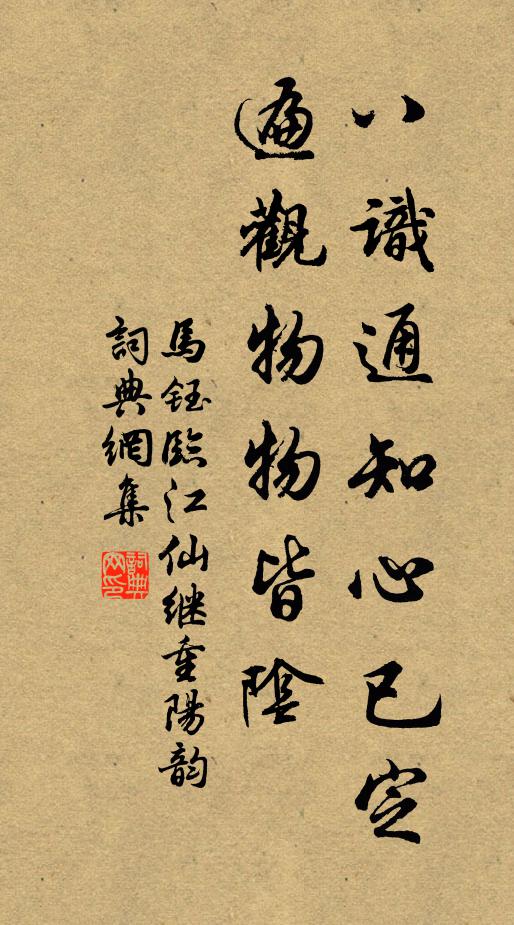 八識通知心已定
遍觀物物皆陰
馬鈺臨江仙继重陽韵
詞典網集
詞典網印